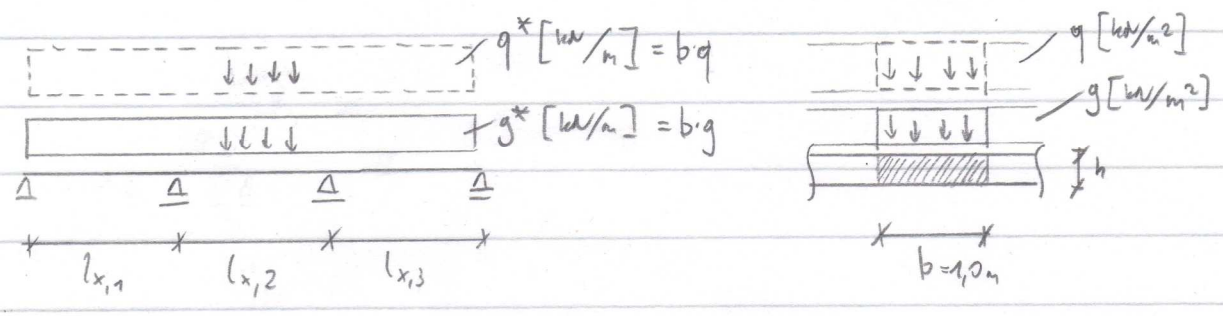 q* [kN/m] = b·q
g* [kN/m] = b·g
l x,1
l x,2
l x,3
q [kN/m²]
g [kN/m²]
h
b=1,0m